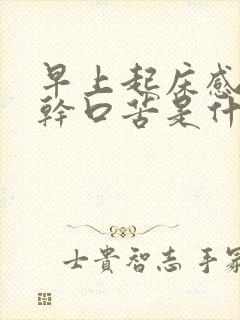 早上起床感
幹口苦是什
士貴智志手冢